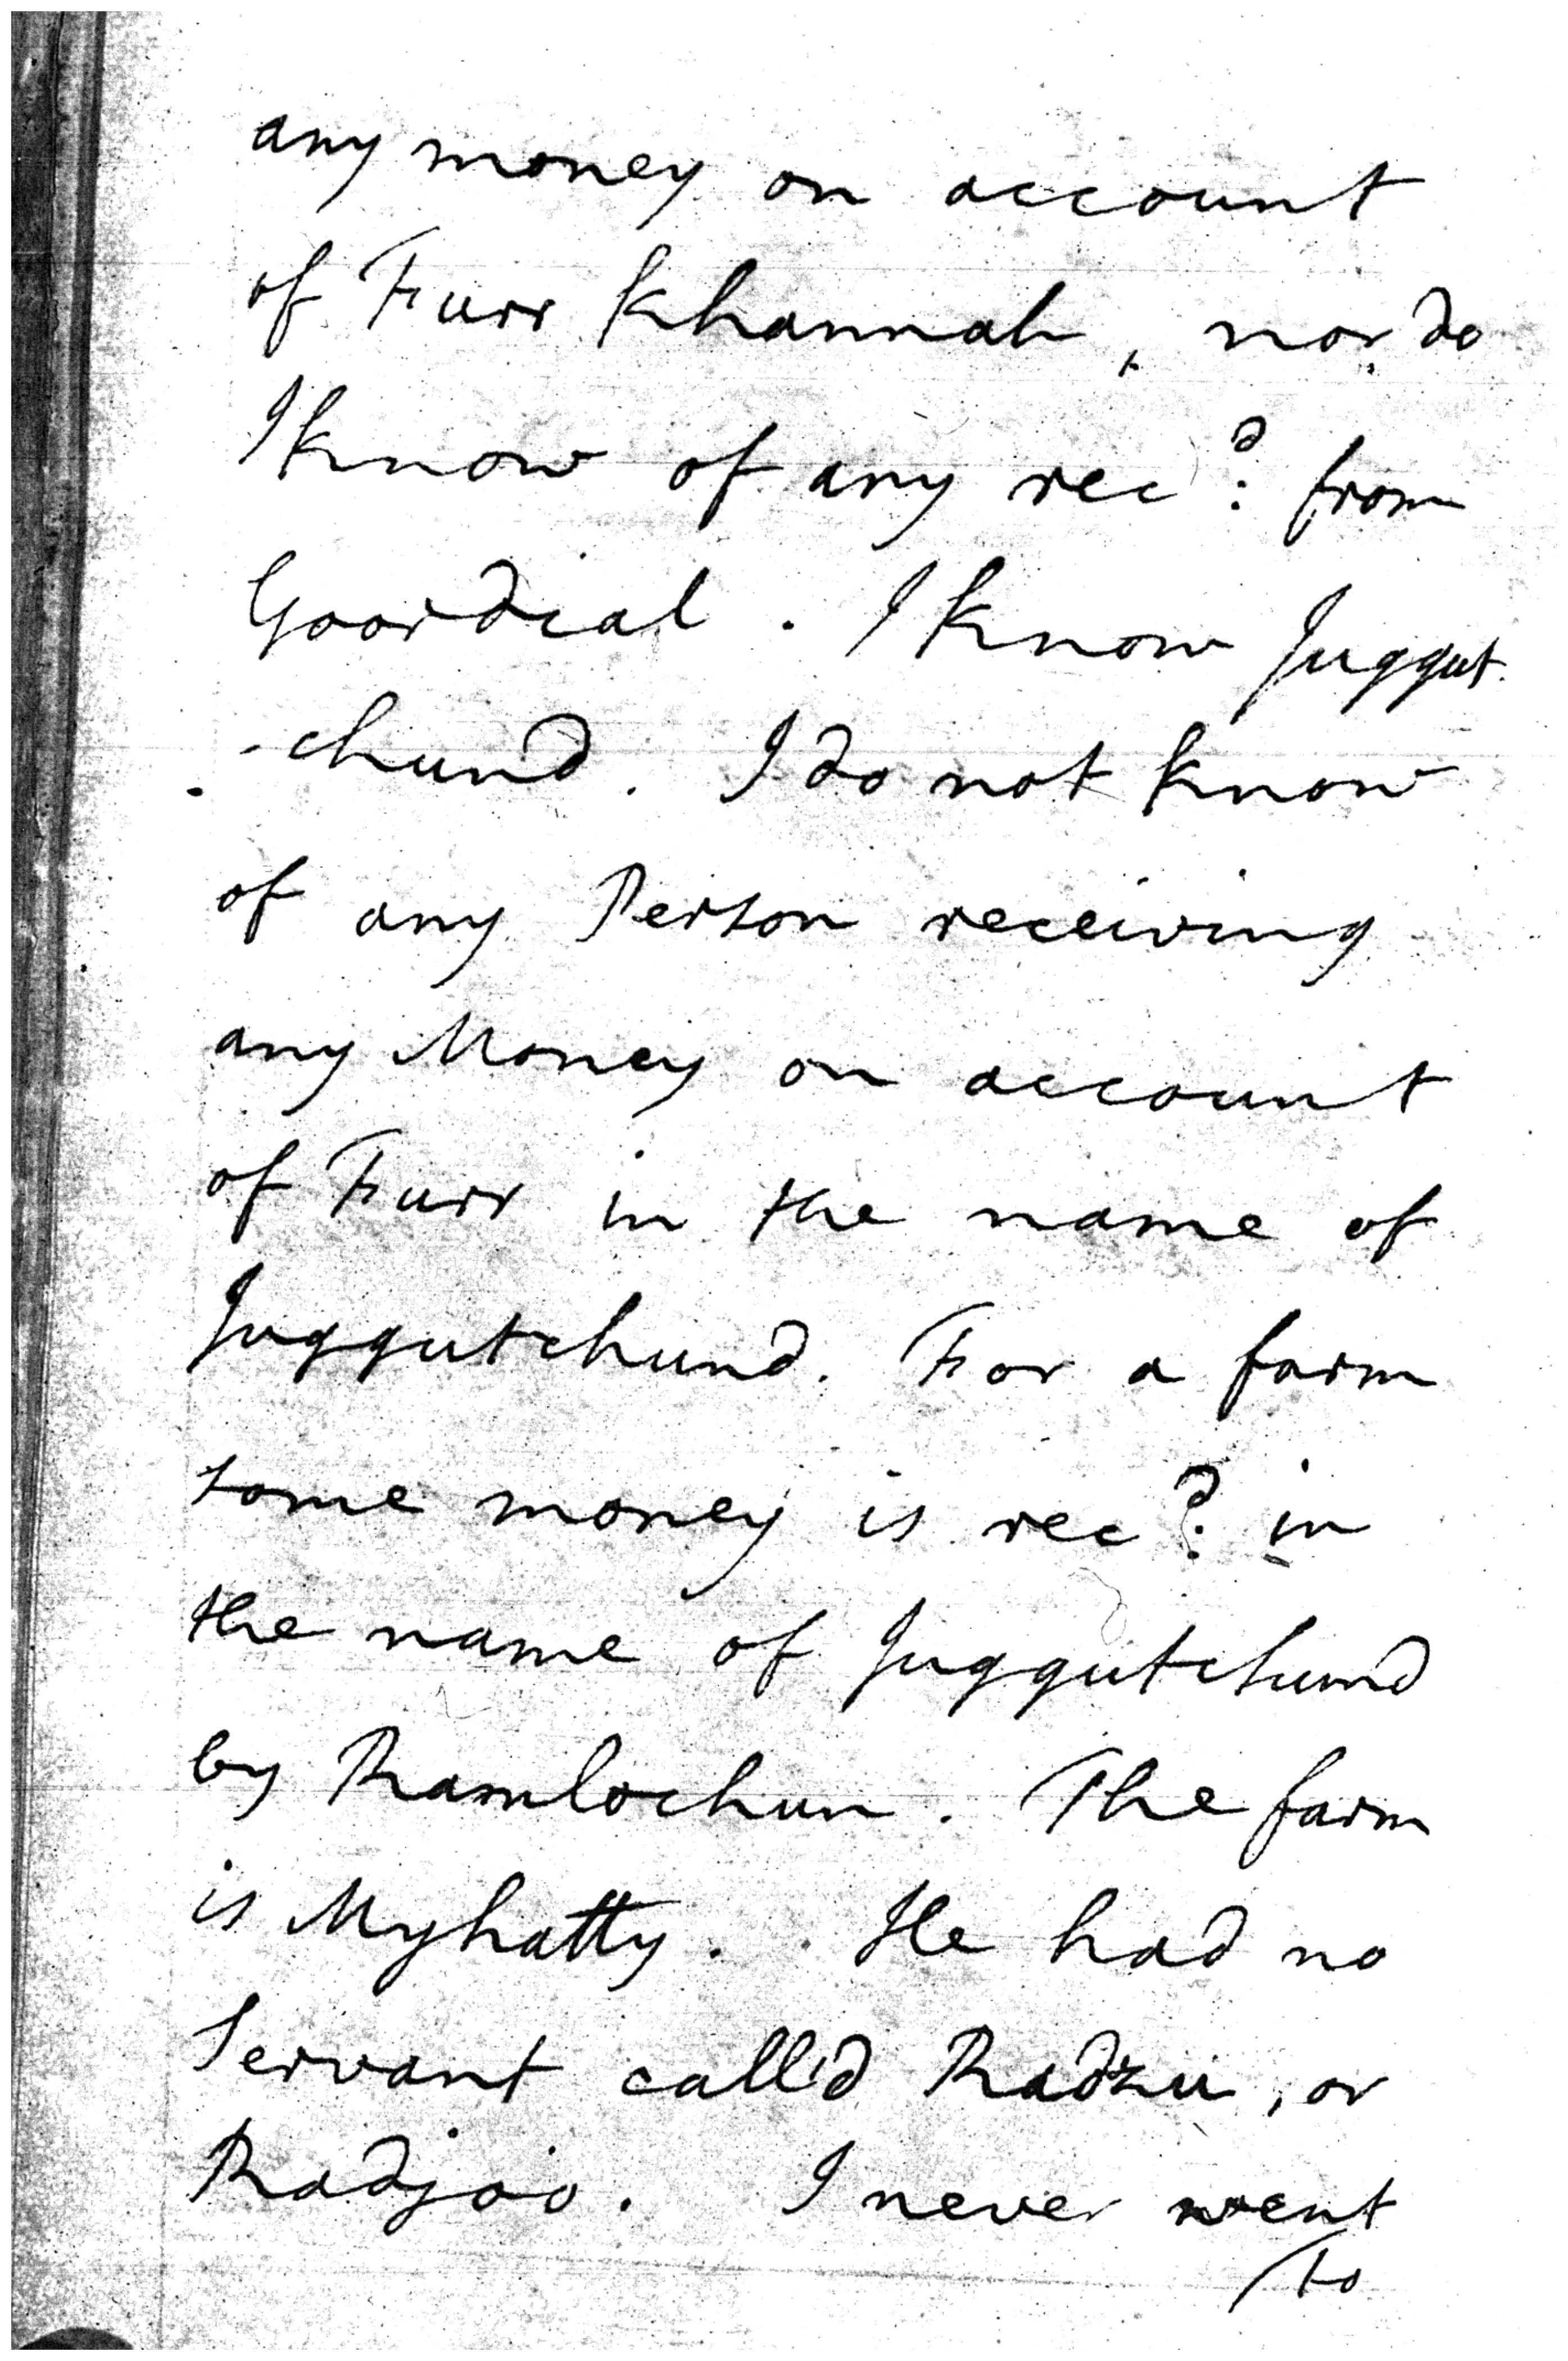 any money on account
of Furr Khannah, nor do
I know of any rec:d from
Goordial. I know Juggut
-chund. I do not know
of any Person receiving
any Money on account
of Furr in the name of
Juggutchund. For a farm
some money is rec:d in
the name of Juggutchund
by Ramlochun. The farm
is Myhatty. He had no
Servant call'd Radzu, or
Radjoo. I never went
to